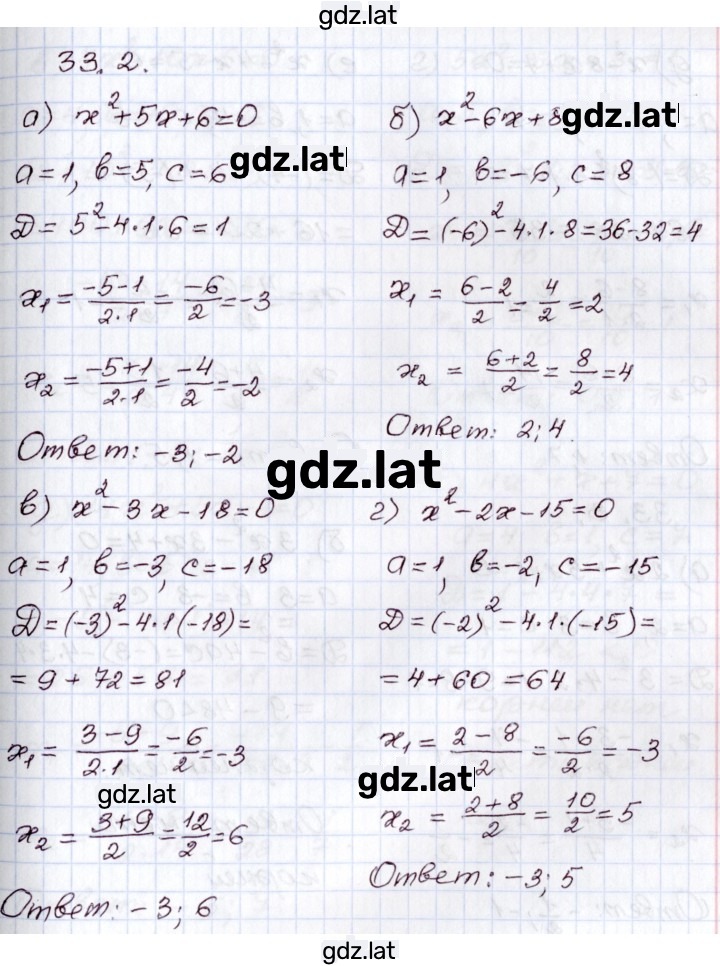 gdz.lat
33.2.
а) x²+5x+6=0
a=1, b=5, c=6 gdz.lat
D= 5²-4·1·6=1
x₁= (-5-1)/(2·1) = (-6)/2 = -3
x₂= (-5+1)/(2·1) = (-4)/2 = -2
Ответ: -3; -2
б) x²-6x+8 gdz.lat
a=1, b=-6, c=8
D=(-6)²-4·1·8=36-32=4
x₁ = (6-2)/2 = 4/2 = 2
x₂ = (6+2)/2 = 8/2 = 4
Ответ: 2; 4.
gdz.lat
в) x²-3x-18=0
a=1, b=-3, c=-18
D=(-3)²-4·1(-18)=
=9+72=81
x₁= (3-9)/(2·1) = (-6)/2 = -3
gdz.lat
x₂ = (3+9)/2 = 12/2 = 6
Ответ: -3; 6
г) x²-2x-15=0
a=1, b=-2, c=-15
D=(-2)²-4·1·(-15)=
=4+60=64
x₁= (2-8)/2 = (-6)/2 = -3
gdz.lat
x₂ = (2+8)/2 = 10/2 = 5
Ответ: -3; 5
gdz.lat